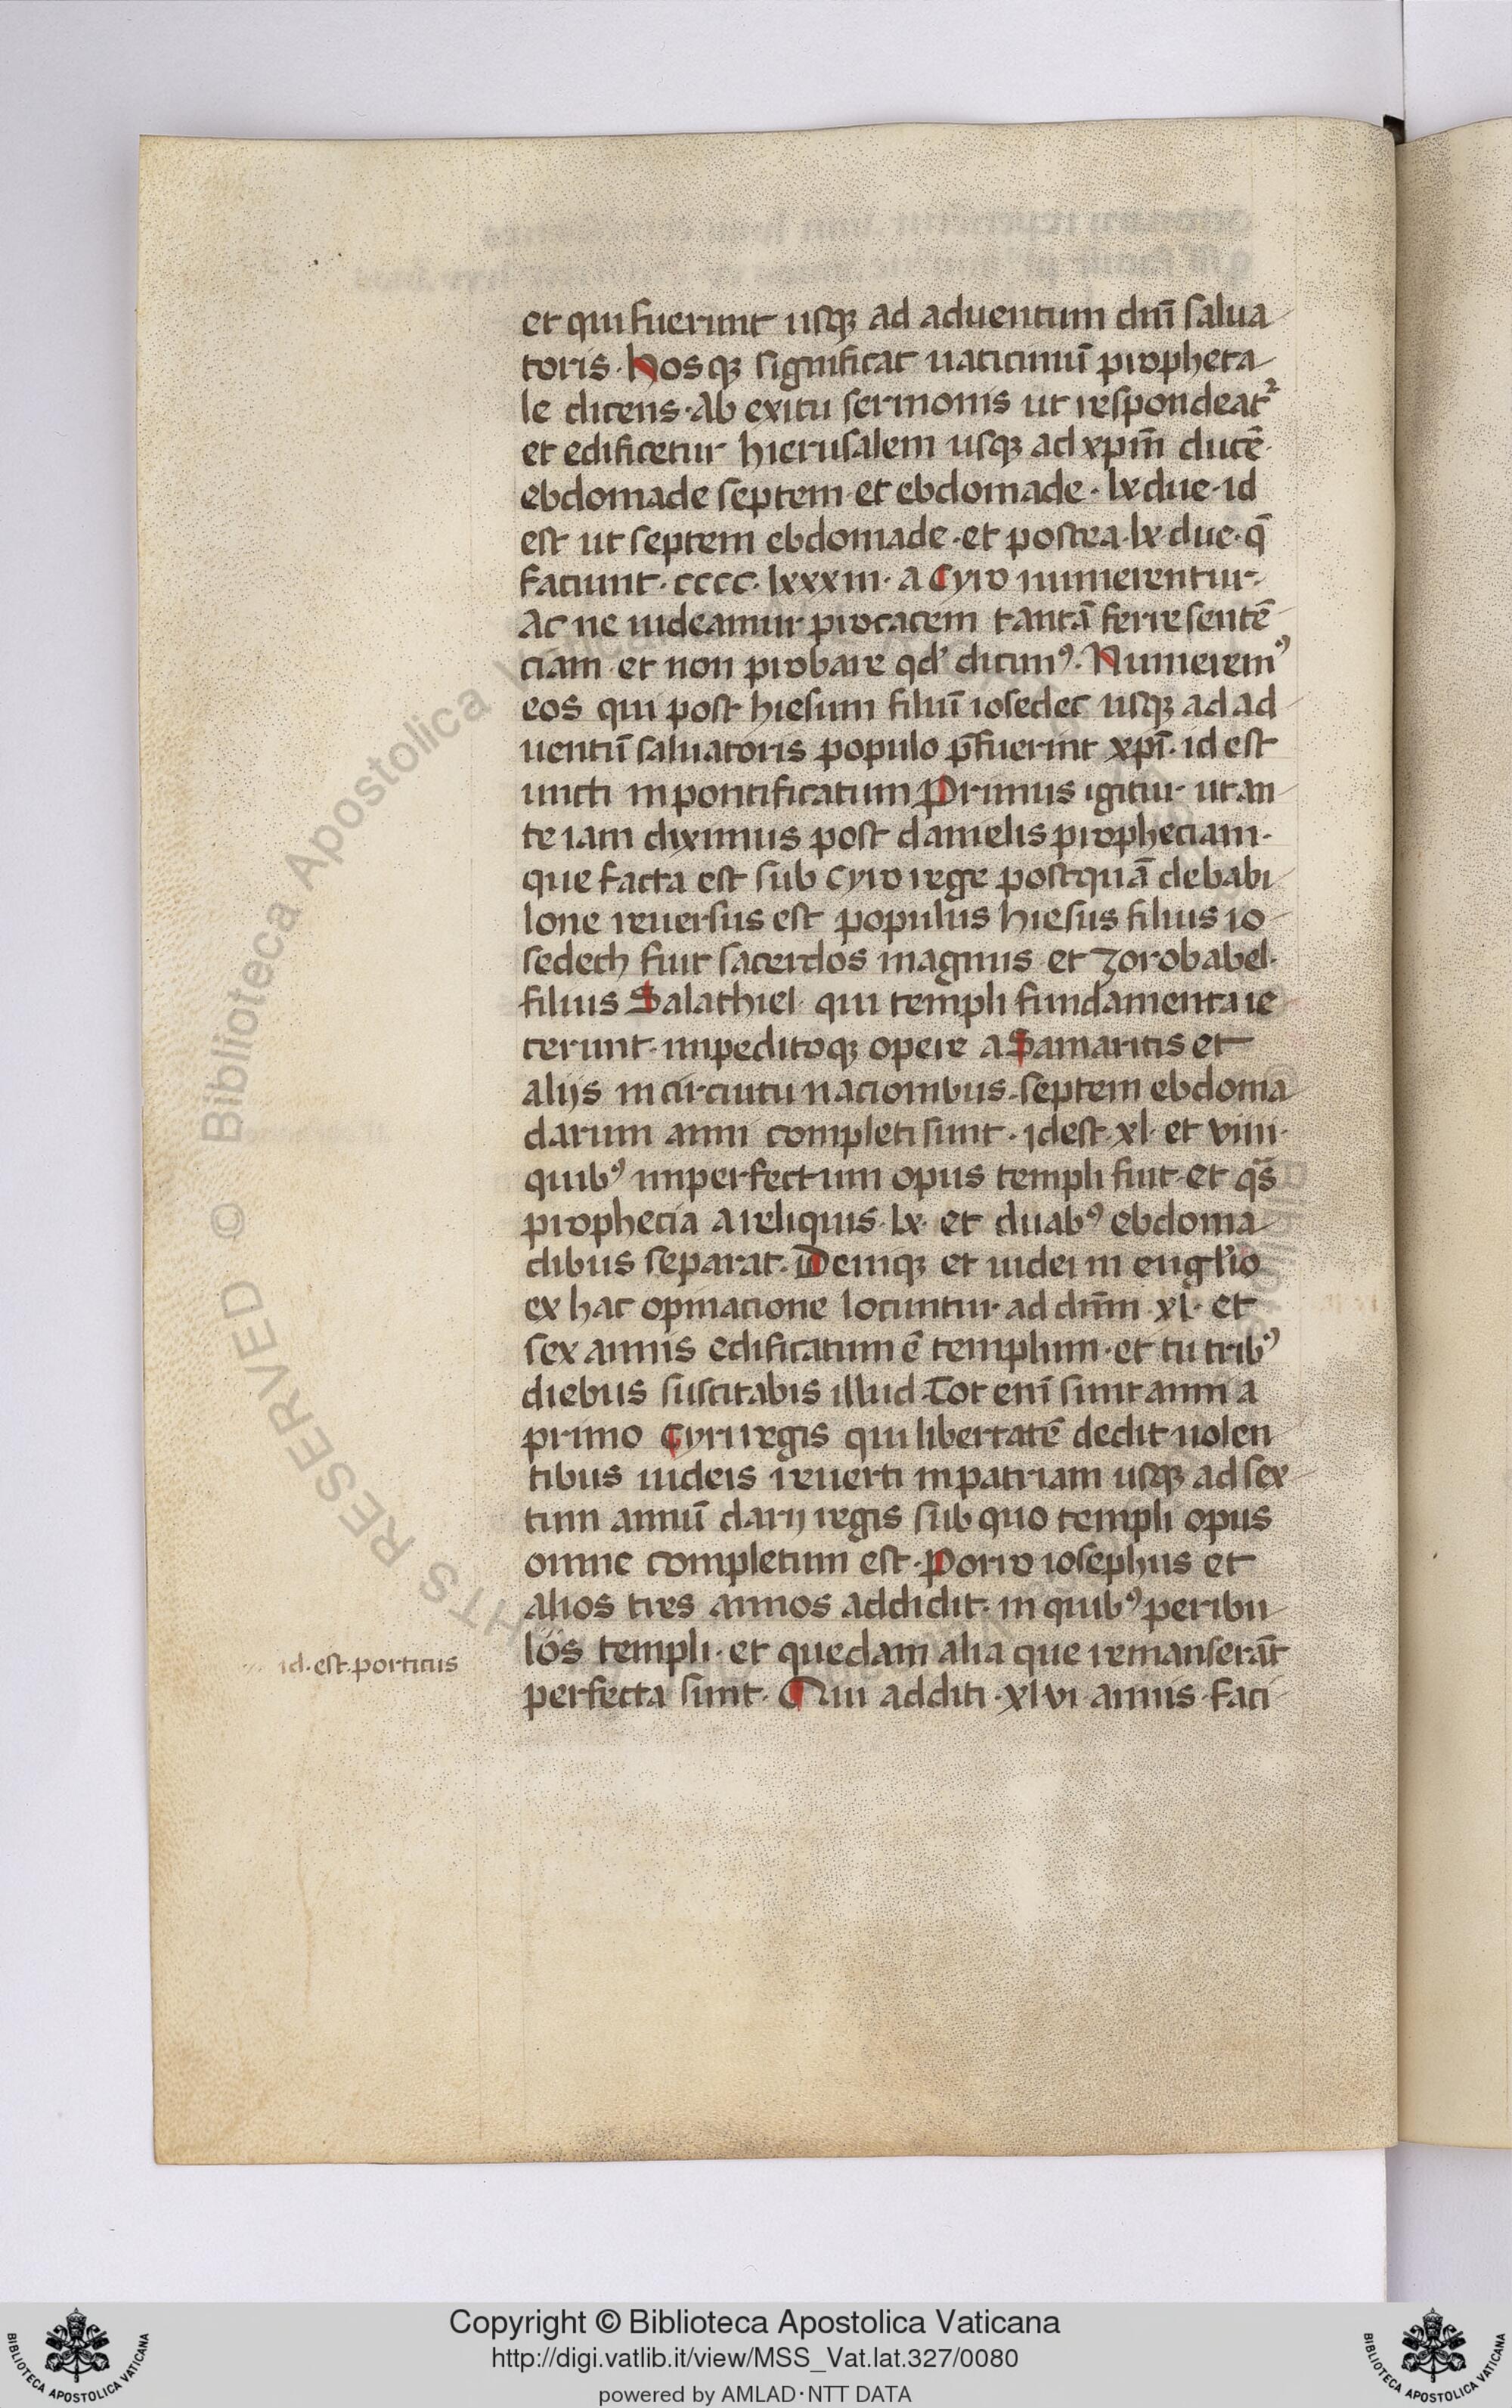 et qui fuerunt usqꝫ ad aduentum dnī salua
toris. Hosqꝫ significat uaticiniū propheta
le dicens. Ab exitu sermonis ut respondeat᷑
et edificetur hierusalem usqꝫ ad xpm̄ ducē.
ebdomade septem. et ebdomade. lx due. id
est ut septem ebdomade. et postea. lx due. q̄
faciunt. cccc. lxxxiii. a Cyro numerentur.
Ac ne uideamur procacem tantā ferre sentē
ciam. et non probare qd' dicimꝰ. Numeremꝰ
eos qui post hiesum filiū iosedec usqꝫ ad ad
uentū saluatoris populo p̄fuerint xpī. id est
uncti in pontificatum. Primus igitur ut an
te iam diximus post danielis propheciam.
que facta est sub cyro rege postquā de babi
lone reuersus est populus hiesus filius io
sedech fuit sacerdos magnus et zorobabel.
filius Salathiel. qui templi fundamenta ie
cerunt. impeditoqꝫ opere a Samaritis et
alijs in circuitu nacionibus. septem ebdoma
darum anni completi sunt. idest. xl. et viiii.
quibꝰ imperfectum opus templi fuit. et qᷓs
prophecia a reliquis. lx. et duabꝰ ebdoma
dibus separat. Deniqꝫ et iudei in eugl'io
ex hac opinacione locuntur ad dnm̄. xl. et
sex annis edificatum ē templum. et tu tribꝰ
diebus suscitabis illud. Tot enī sunt anni a
primo Cyri regis qui libertatē dedit uolen
tibus iudeis reuerti in patriam usqꝫ ad sex
tum annū darij regis sub quo templi opus
omne completum est. Porro iosephus et
alios tres annos addidit. in quibꝰ peribu
los templi. et quedam alia que remanserāt
id. est. porticus
perfecta sunt. Qui additi. xlvi annis faci
Copyright © Biblioteca Apostolica Vaticana
http://digi.vatlib.it/view/MSS_Vat.lat.327/0080
powered by AMLAD·NTT DATA